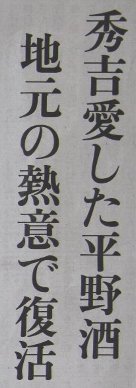 秀吉愛した平野酒
地元の熱意で復活